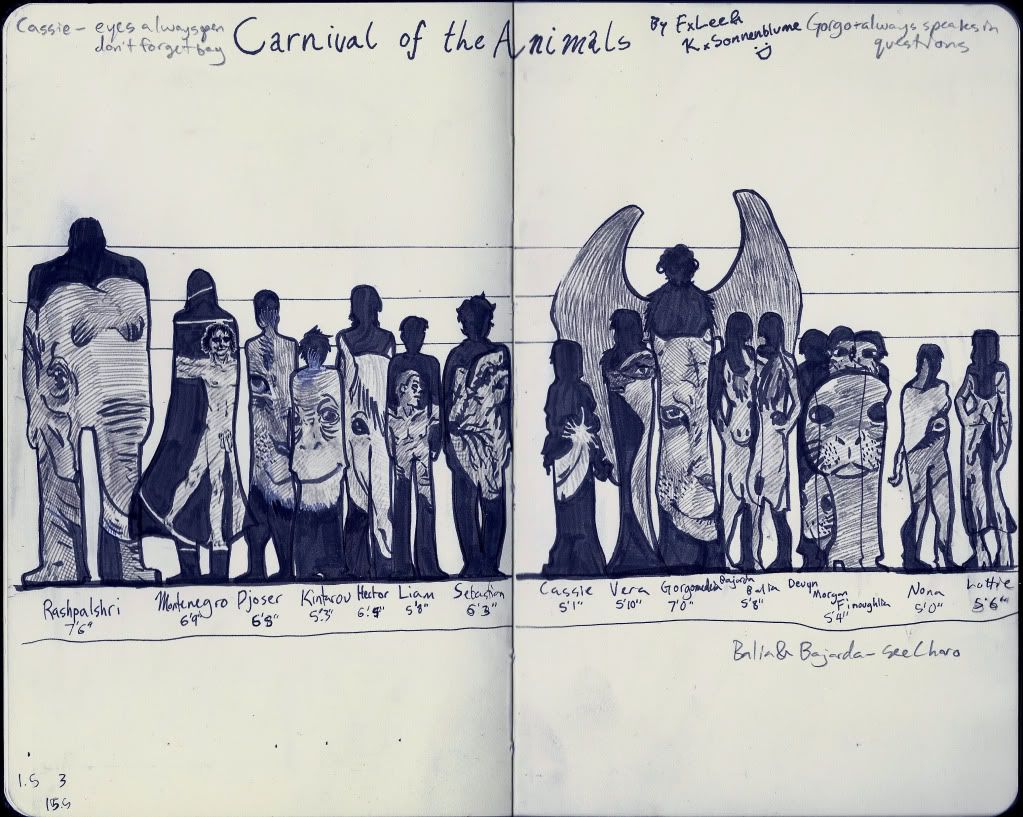 Cassie - eyes always open
don't forget bay
Carnival of the Animals
By FxLeeR
KxSonnenblume
Gorgo + always speaks in
questions
Rashpalshri
7'6"
Montenegro
6'9"
Djoser
6'8"
Kintarou
5'3"
Hector
Liam
5'8"
Sebastian
6'3"
Cassie
5'1"
Vera
5'10"
7'0"
Bajarda
Balia
5'8"
Devyn
Morgan
5'4"
Nona
5'0"
Lottie
5'6"
Balia & Bajarda - see Charo
1.5 3